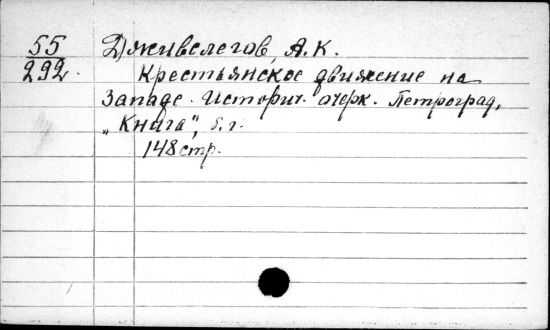 55
292.
Дживелегов, А.К.
Крестьянское движение на
Западе. Историч. очерк. Петроград,
„Книга", б.г.
148 стр.